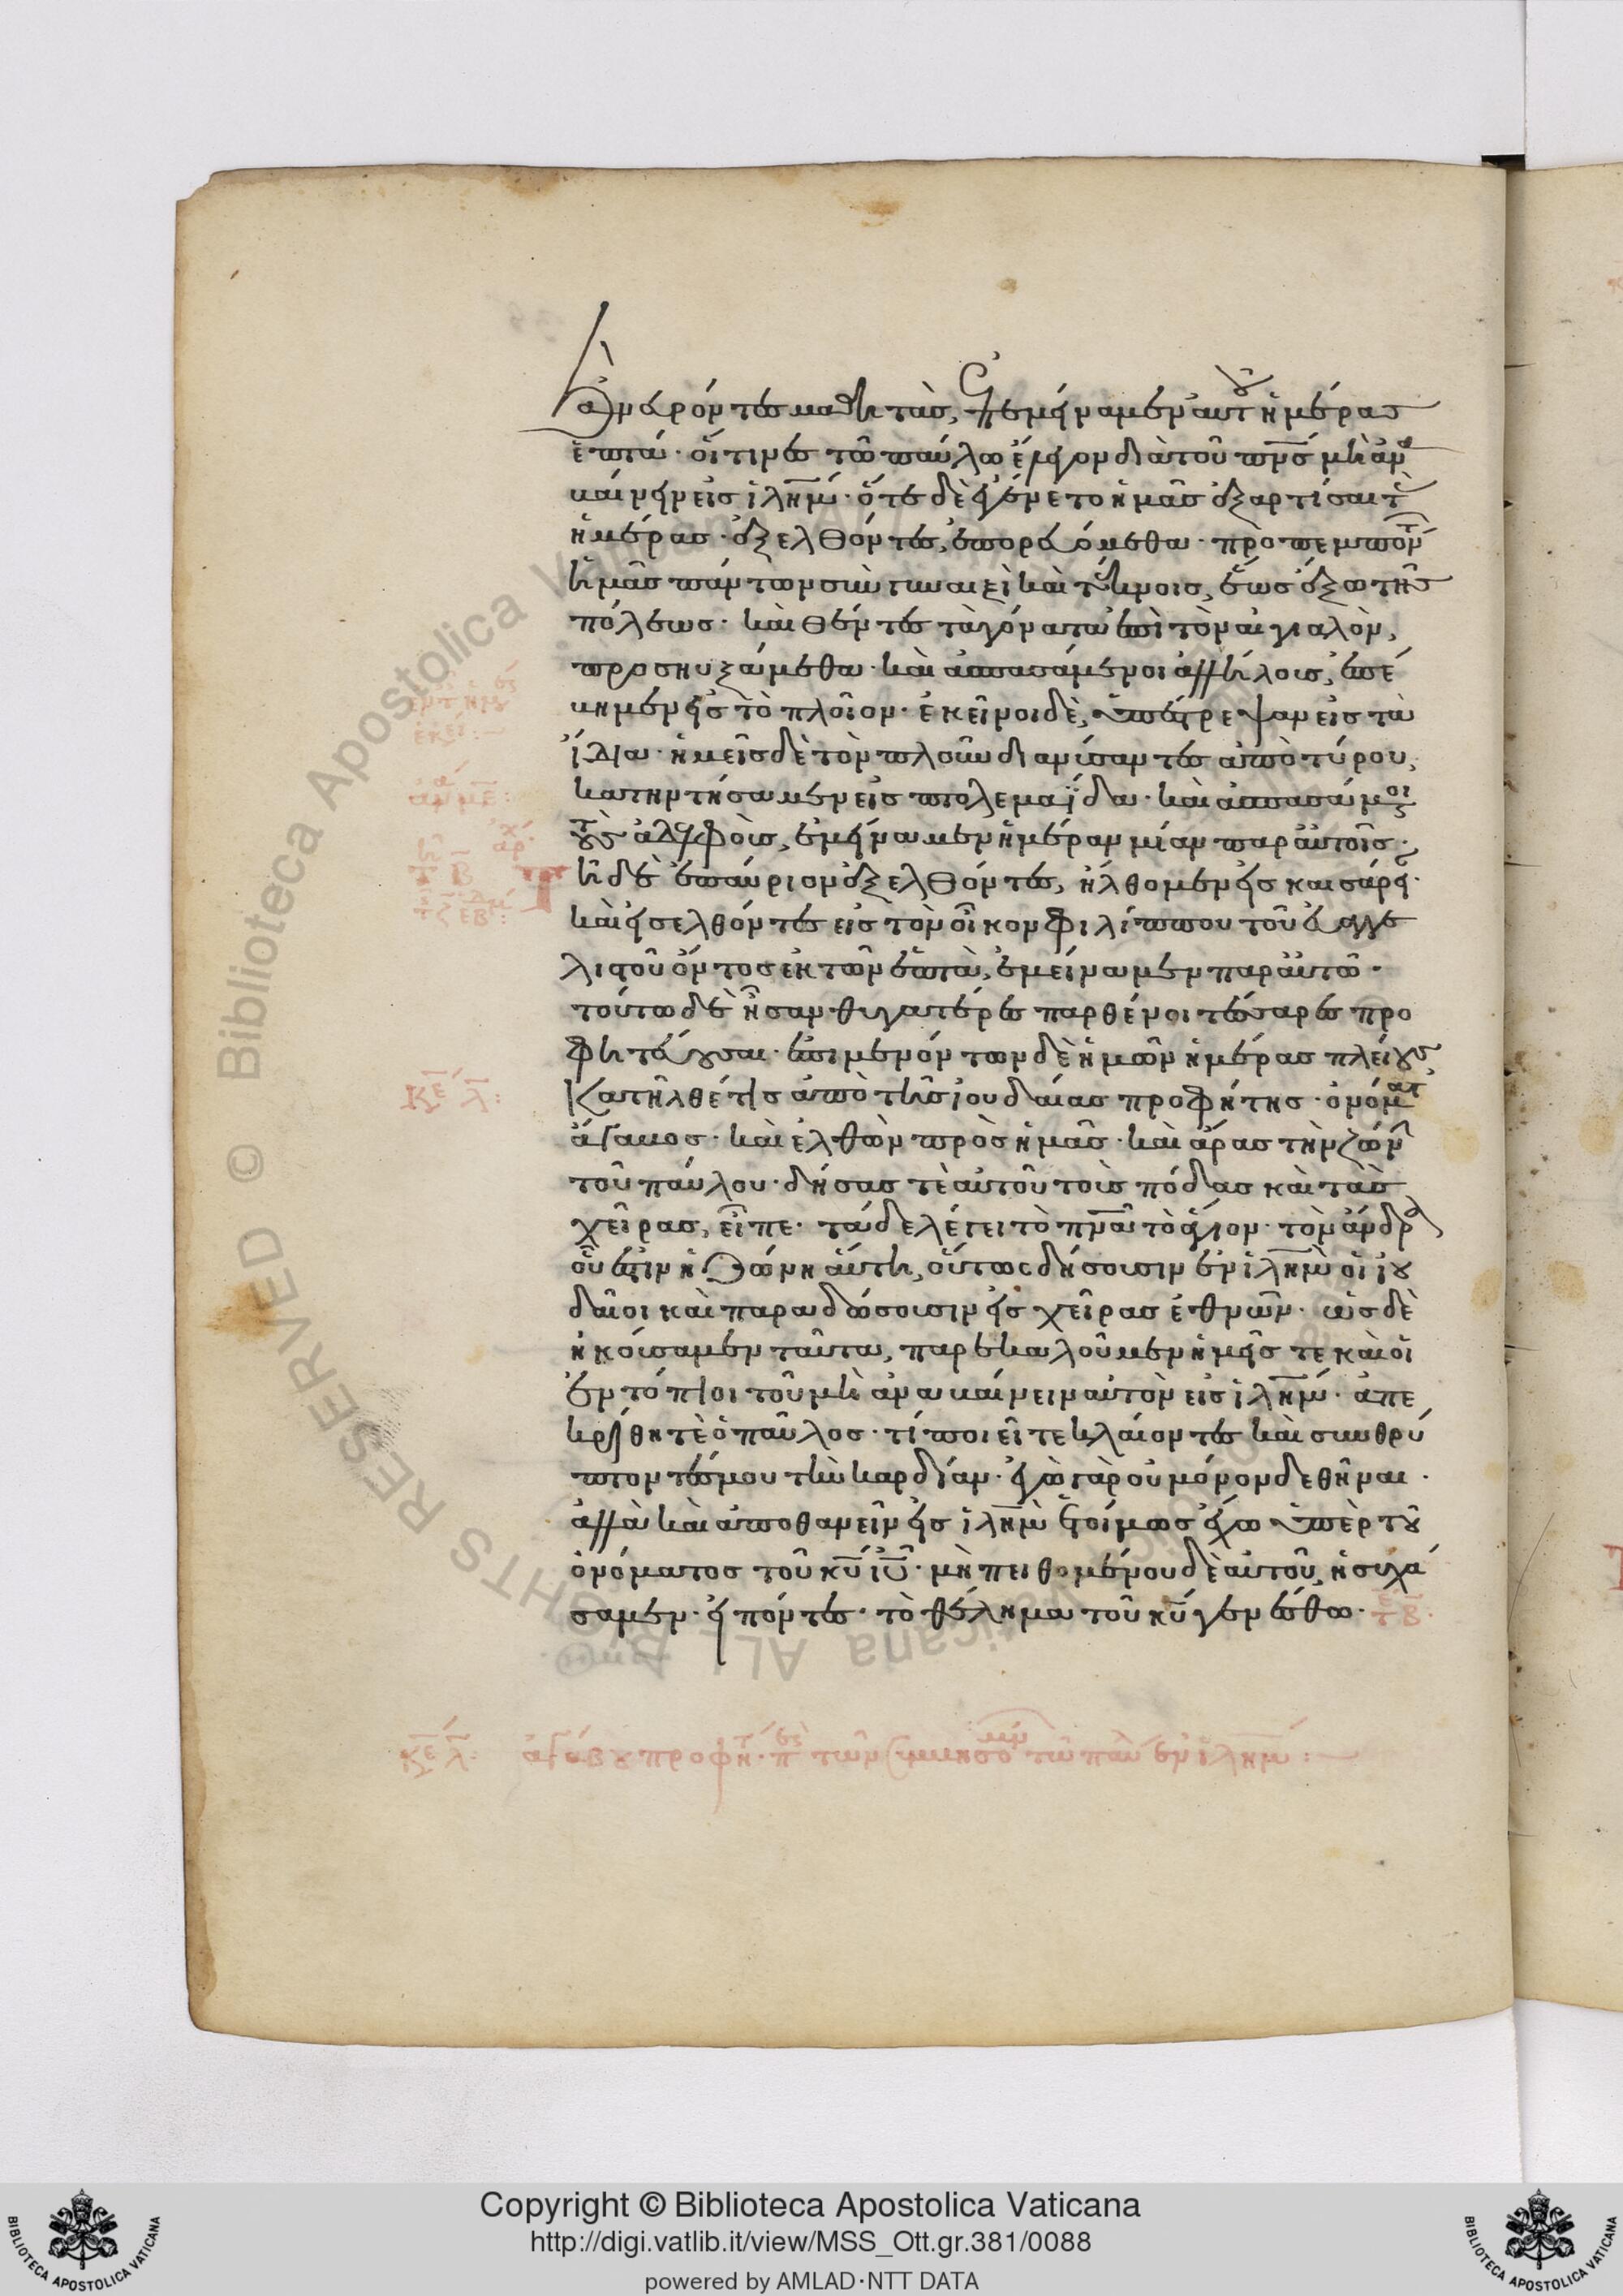 ἀνευρόντες μαθητὰς, ἐπεμείναμεν αὐτοῦ ἡμέρας
ἑπτά· οἵτινες τῷ παύλῳ ἔλεγον διὰ τοῦ πνς μὴ ἀνα
βαίνειν εἰς ἱλημ· ὅτε δὲ ἐγένετο ἡμᾶς ἐξαρτίσαι τὰς
ἡμέρας· ἐξελθόντες, ἐπορευόμεθα· προπεμπόντων
ἡμᾶς πάντων σὺν γυναιξὶ καὶ τέκνοις, ἕως ἔξω τῆς
πόλεως· καὶ θέντες τὰ γόνατα ἐπὶ τὸν αἰγιαλὸν,
προσηυξάμεθα· καὶ ἀσπασάμενοι ἀλλήλους, ἐπέ
βημεν εἰς τὸ πλοῖον· ἐκεῖνοι δὲ, ὑπέστρεψαν εἰς τὰ
ἴδια· ἡμεῖς δὲ τὸν πλοῦν διανύσαντες ἀπὸ τύρου,
κατηντήσαμεν εἰς πτολεμαΐδα· καὶ ἀσπασάμενοι
τοὺς ἀδελφοὺς, ἐμείναμεν ἡμέραν μίαν παρ' αὐτοῖς·
Τῆ δὲ ἐπαύριον ἐξελθόντες, ἤλθομεν εἰς καισάρειαν·
καὶ εἰσελθόντες εἰς τὸν οἶκον φιλίππου τοῦ εὐαγγε
λιστοῦ ὄντος ἐκ τῶν ἑπτὰ, ἐμείναμεν παρ' αὐτῷ·
τούτῳ δὲ ἦσαν θυγατέρες παρθένοι τέσσαρες προ
φητεύουσαι· ἐπιμενόντων δὲ ἡμῶν ἡμέρας πλείους
Κατῆλθέ τις ἀπὸ τῆς ἰουδαίας προφήτης· ὀνόματι
ἄγαβος· καὶ ἐλθὼν πρὸς ἡμᾶς· καὶ ἄρας τὴν ζώνην
τοῦ παύλου· δήσας τὲ αὐτοῦ τοὺς πόδας καὶ τὰς
χεῖρας, εἶπε· τάδε λέγει τὸ πνα τὸ ἅγιον· τὸν ἄνδρα
οὗ ἐστιν ἡ ζώνη αὕτη, οὕτως δήσουσιν ἐν ἱλημ οἱ ἰου
δαῖοι καὶ παραδώσουσιν εἰς χεῖρας ἐθνῶν· ὡς δὲ
ἠκούσαμεν ταῦτα, παρεκαλοῦμεν ἡμεῖς τε καὶ οἱ
ἐντόπιοι τοῦ μὴ ἀναβαίνειν αὐτὸν εἰς ἱλημ· ἀπε
κρίθη τὲ ὁ παῦλος· τί ποιεῖτε κλαίοντες καὶ συνθρύ
πτοντές μου τὴν καρδίαν· ἐγὼ γὰρ οὐ μόνον δεθῆναι·
ἀλλὰ καὶ ἀποθανεῖν εἰς ἱλημ ἑτοίμως ἔχω ὑπὲρ τοῦ
ὀνόματος τοῦ κυ ιυ· μὴ πειθομένου δὲ αὐτοῦ, ἡσυχά
σαμεν· εἰπόντες· τὸ θέλημα τοῦ κυ γενέσθω·
Copyright © Biblioteca Apostolica Vaticana
http://digi.vatlib.it/view/MSS_Ott.gr.381/0088
powered by AMLAD·NTT DATA